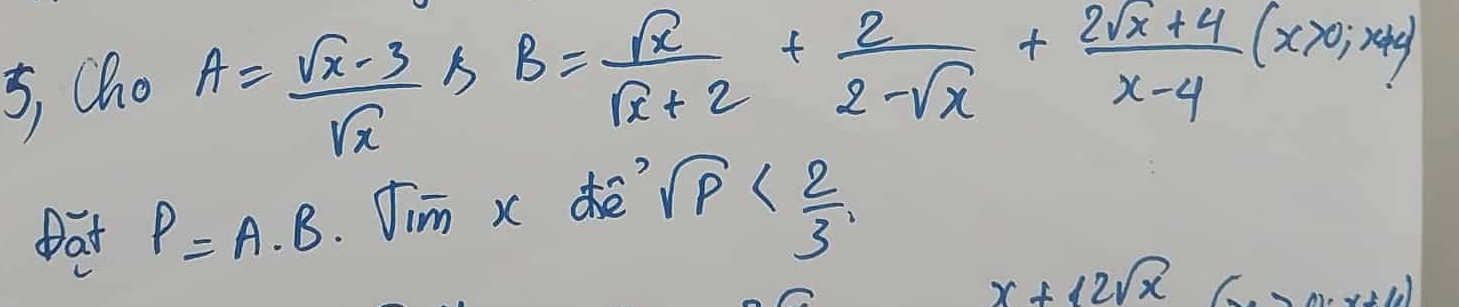 5, Cho A = (√x - 3)/√x & B = √x/(√x + 2) + 2/(2 - √x) + (2√x + 4)/(x - 4) (x>0; x≠4)
Đặt P = A.B. Tìm x để √P < 2/3.
x + 12√x